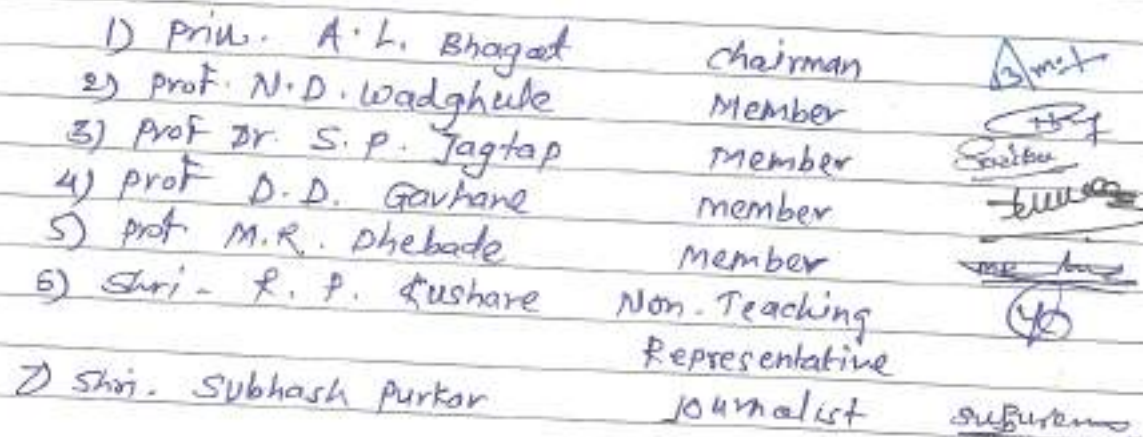 1) Prin. A.L. Bhagat Chairman
2) Prof. N.D. Wadghule Member
3) Prof Dr. S.P. Jagtap Member
4) Prof D.D. Gavhane Member
5) Prof M.R. Dhebade Member
6) Shri - R.P. Kushare Non-Teaching
Representative
7) Shri. Subhash Purkar Journalist